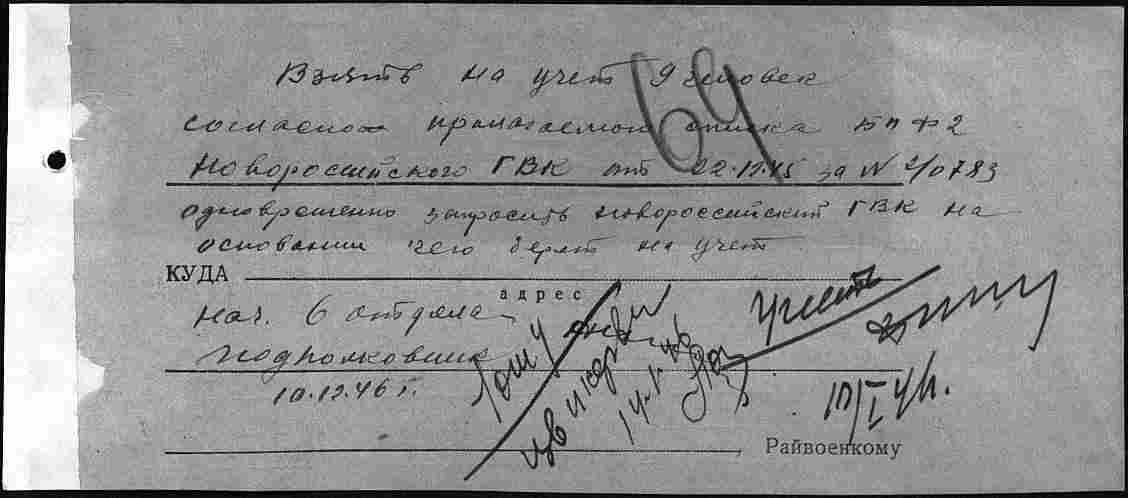 Взять на учет 9 человек
согласно прилагаемого списка вп ф 2
Новороссийского ГВК от 22.12.45 за N 2/0783
одновременно запросить новороссийский ГВК на
основании чего берет на учет
КУДА
адрес
нач. 6 отдела
подполковник
10.12.46 г.
64
Учесть
10/I 46.
Райвоенкому